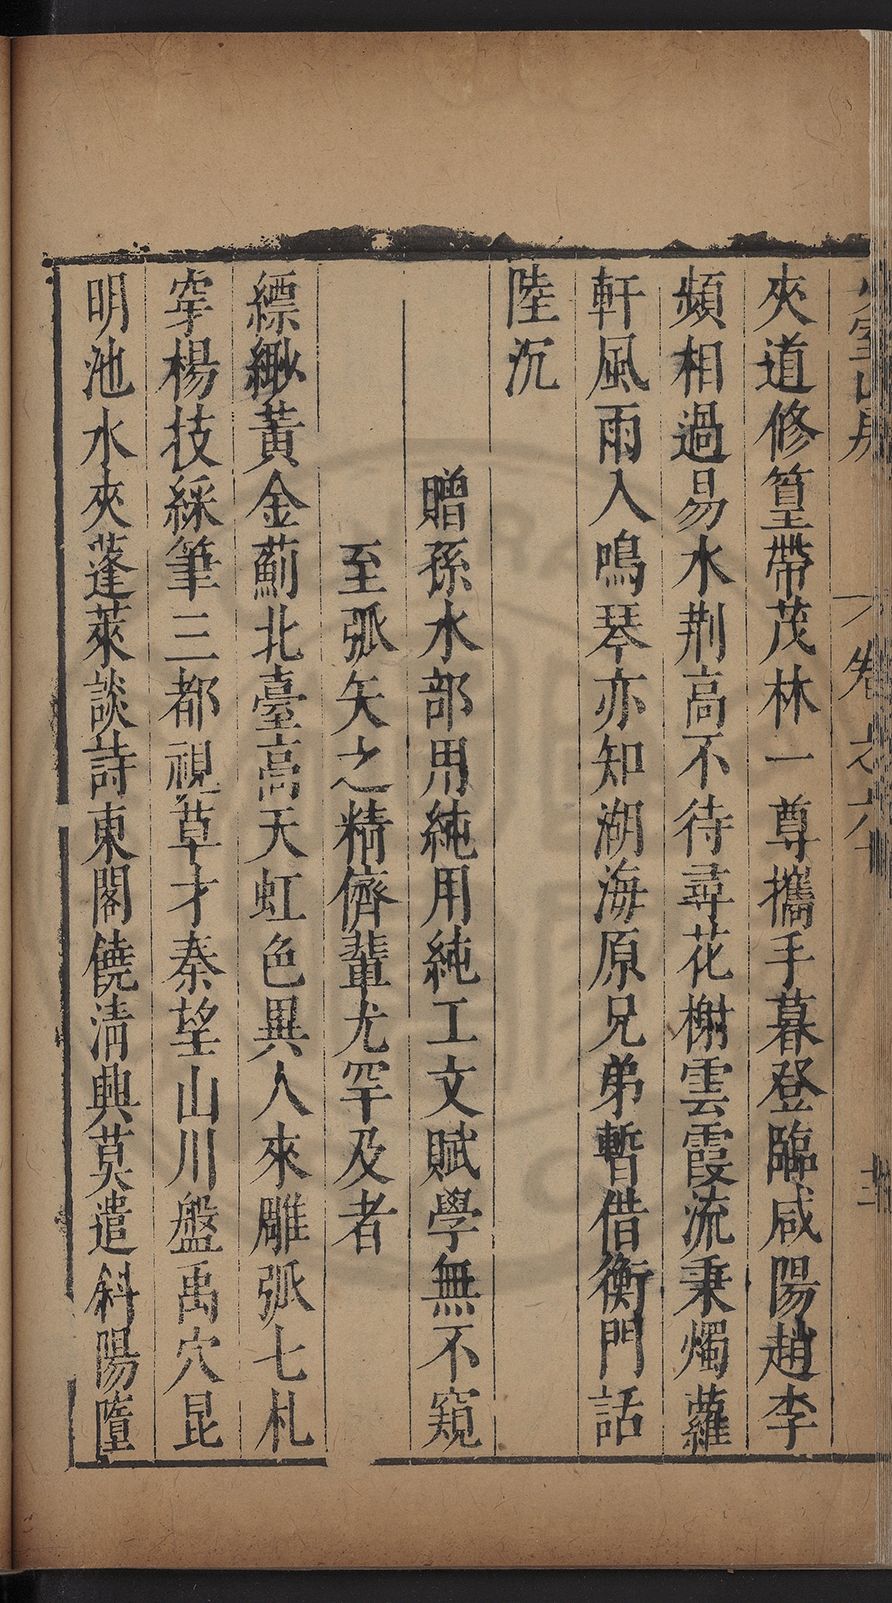 少室山房
卷之六十
夾道修篁帶茂林一尊攜手暮登臨咸陽趙李
頻相過易水荆高不待尋花榭雲霞流秉燭蘿
軒風雨入鳴琴亦知湖海原兄弟暫借衡門話
陸沉
贈孫水部用純用純工文賦學無不窺
至弧矢之精儕輩尤罕及者
縹緲黃金薊北臺高天虹色異人來雕弧七札
穿楊技綵筆三都視草才秦望山川盤禹穴昆
明池水夾蓬萊談詩東閣饒清興莫遣斜陽墮